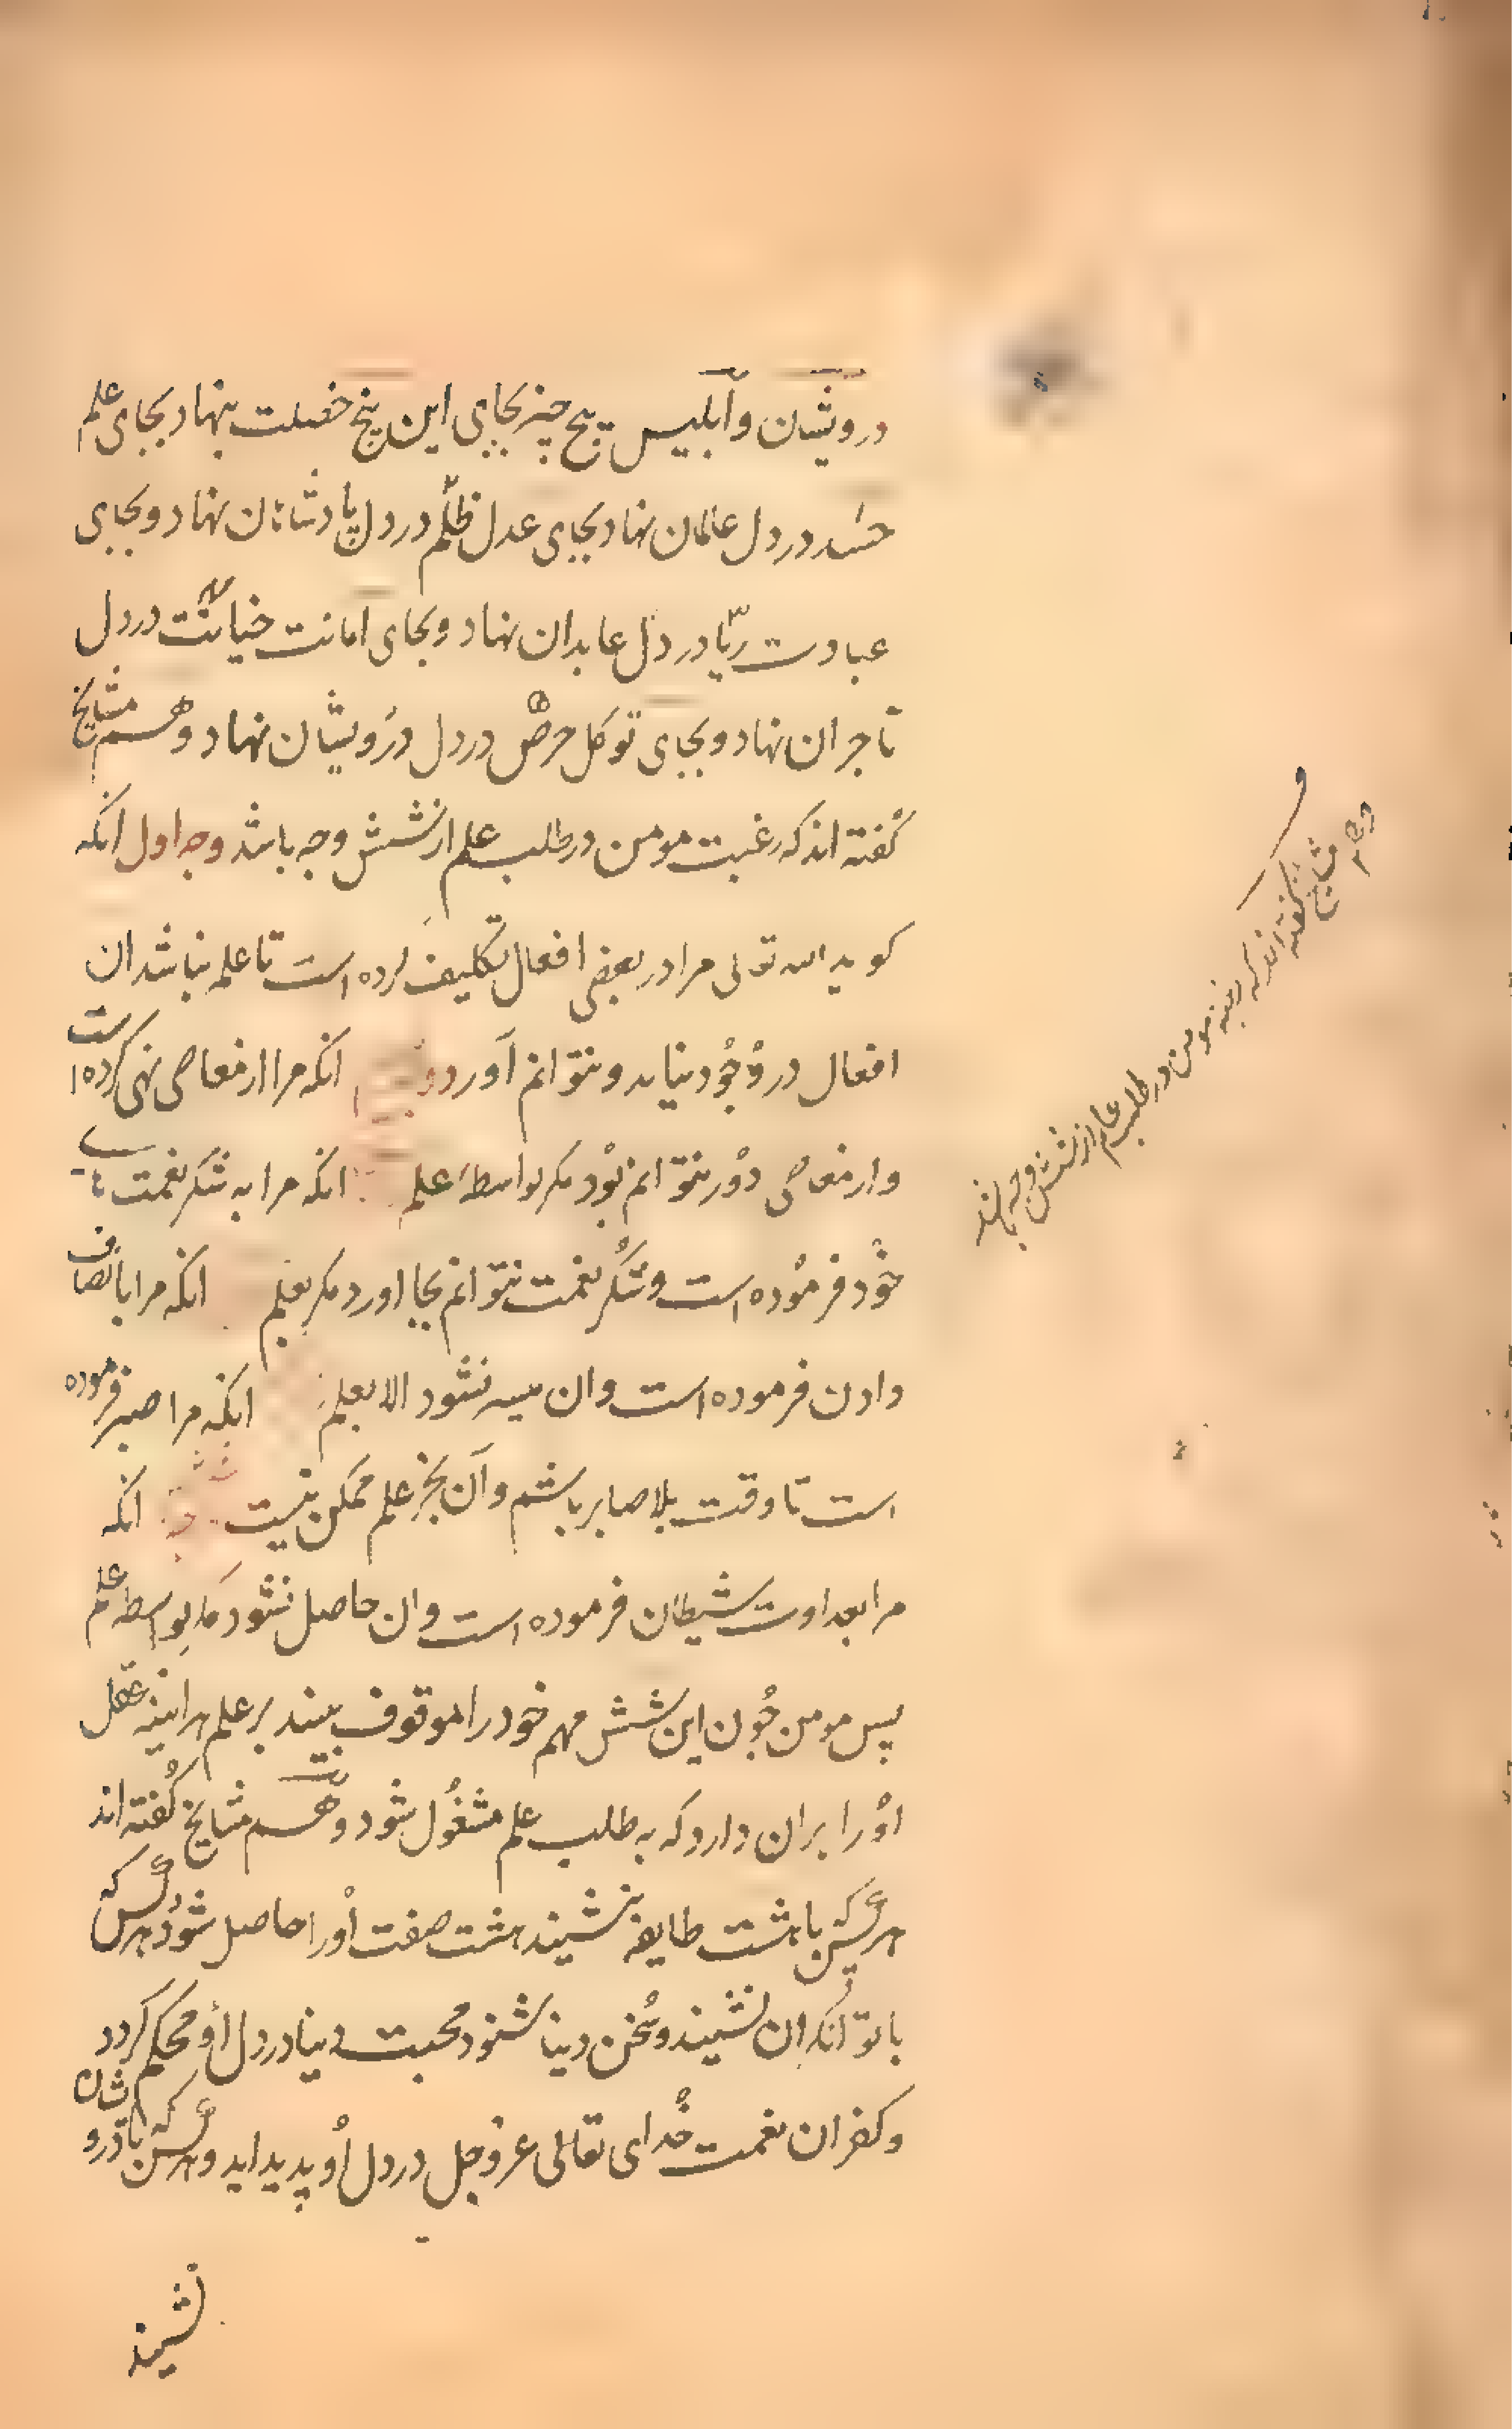 درویشان و ابلیس پنج چیز بجای این پنج خصلت بنهاد بجای علم
حسد در دل عالمان نهاد بجای عدل ظلم در دل پادشاهان نهاد و بجای
عبادت ریا در دل عابدان نهاد و بجای امانت خیانت در دل
تاجران نهاد و بجای توکل حرص در دل درویشان نهاد و هم مشایخ
گفته اند که رغبت مومن در طلب علم از شش وجه باشد وجه اول انکه
کوید الله تعالی مرا در بعضی افعال تکلیف کرده است تا علم نباشد ان
افعال در وجود نیاید و نتوانم آورد انکه مرا از معاصی نهی کرده است
و از معاصی دور نتوانم بود مکر بواسطه علم انکه مرا به شکر نعمت
خود فرموده است و شکر نعمت نتوانم بجا اورد مکر بعلم انکه مرا بانصاف
دادن فرموده است و ان میسر نشود الا بعلم انکه مرا صبر فرموده
است تا وقت بلا صابر باشم و آن بجز علم ممکن نیست انکه
مرا بعداوت شیطان فرموده است و ان حاصل نشود مکر بواسطه علم
پس مومن چون این شش مهم خود را موقوف بیند بر علم هراینه عقل
او را بران دارد که به طلب علم مشغول شود و هم مشایخ گفته اند
هرکس که با هشت طایفه بنشیند هشت صفت او را حاصل شود هرکس که
با توانکران نشیند و سخن دنیا شنود محبت دنیا در دل او محکم کردد
و کفران نعمت خدای تعالی عز و جل در دل او پدید اید و هرکس که با درویشان
نشیند
مشایخ گفته اند که رغبت مومن در طلب علم از شش وجه باشد